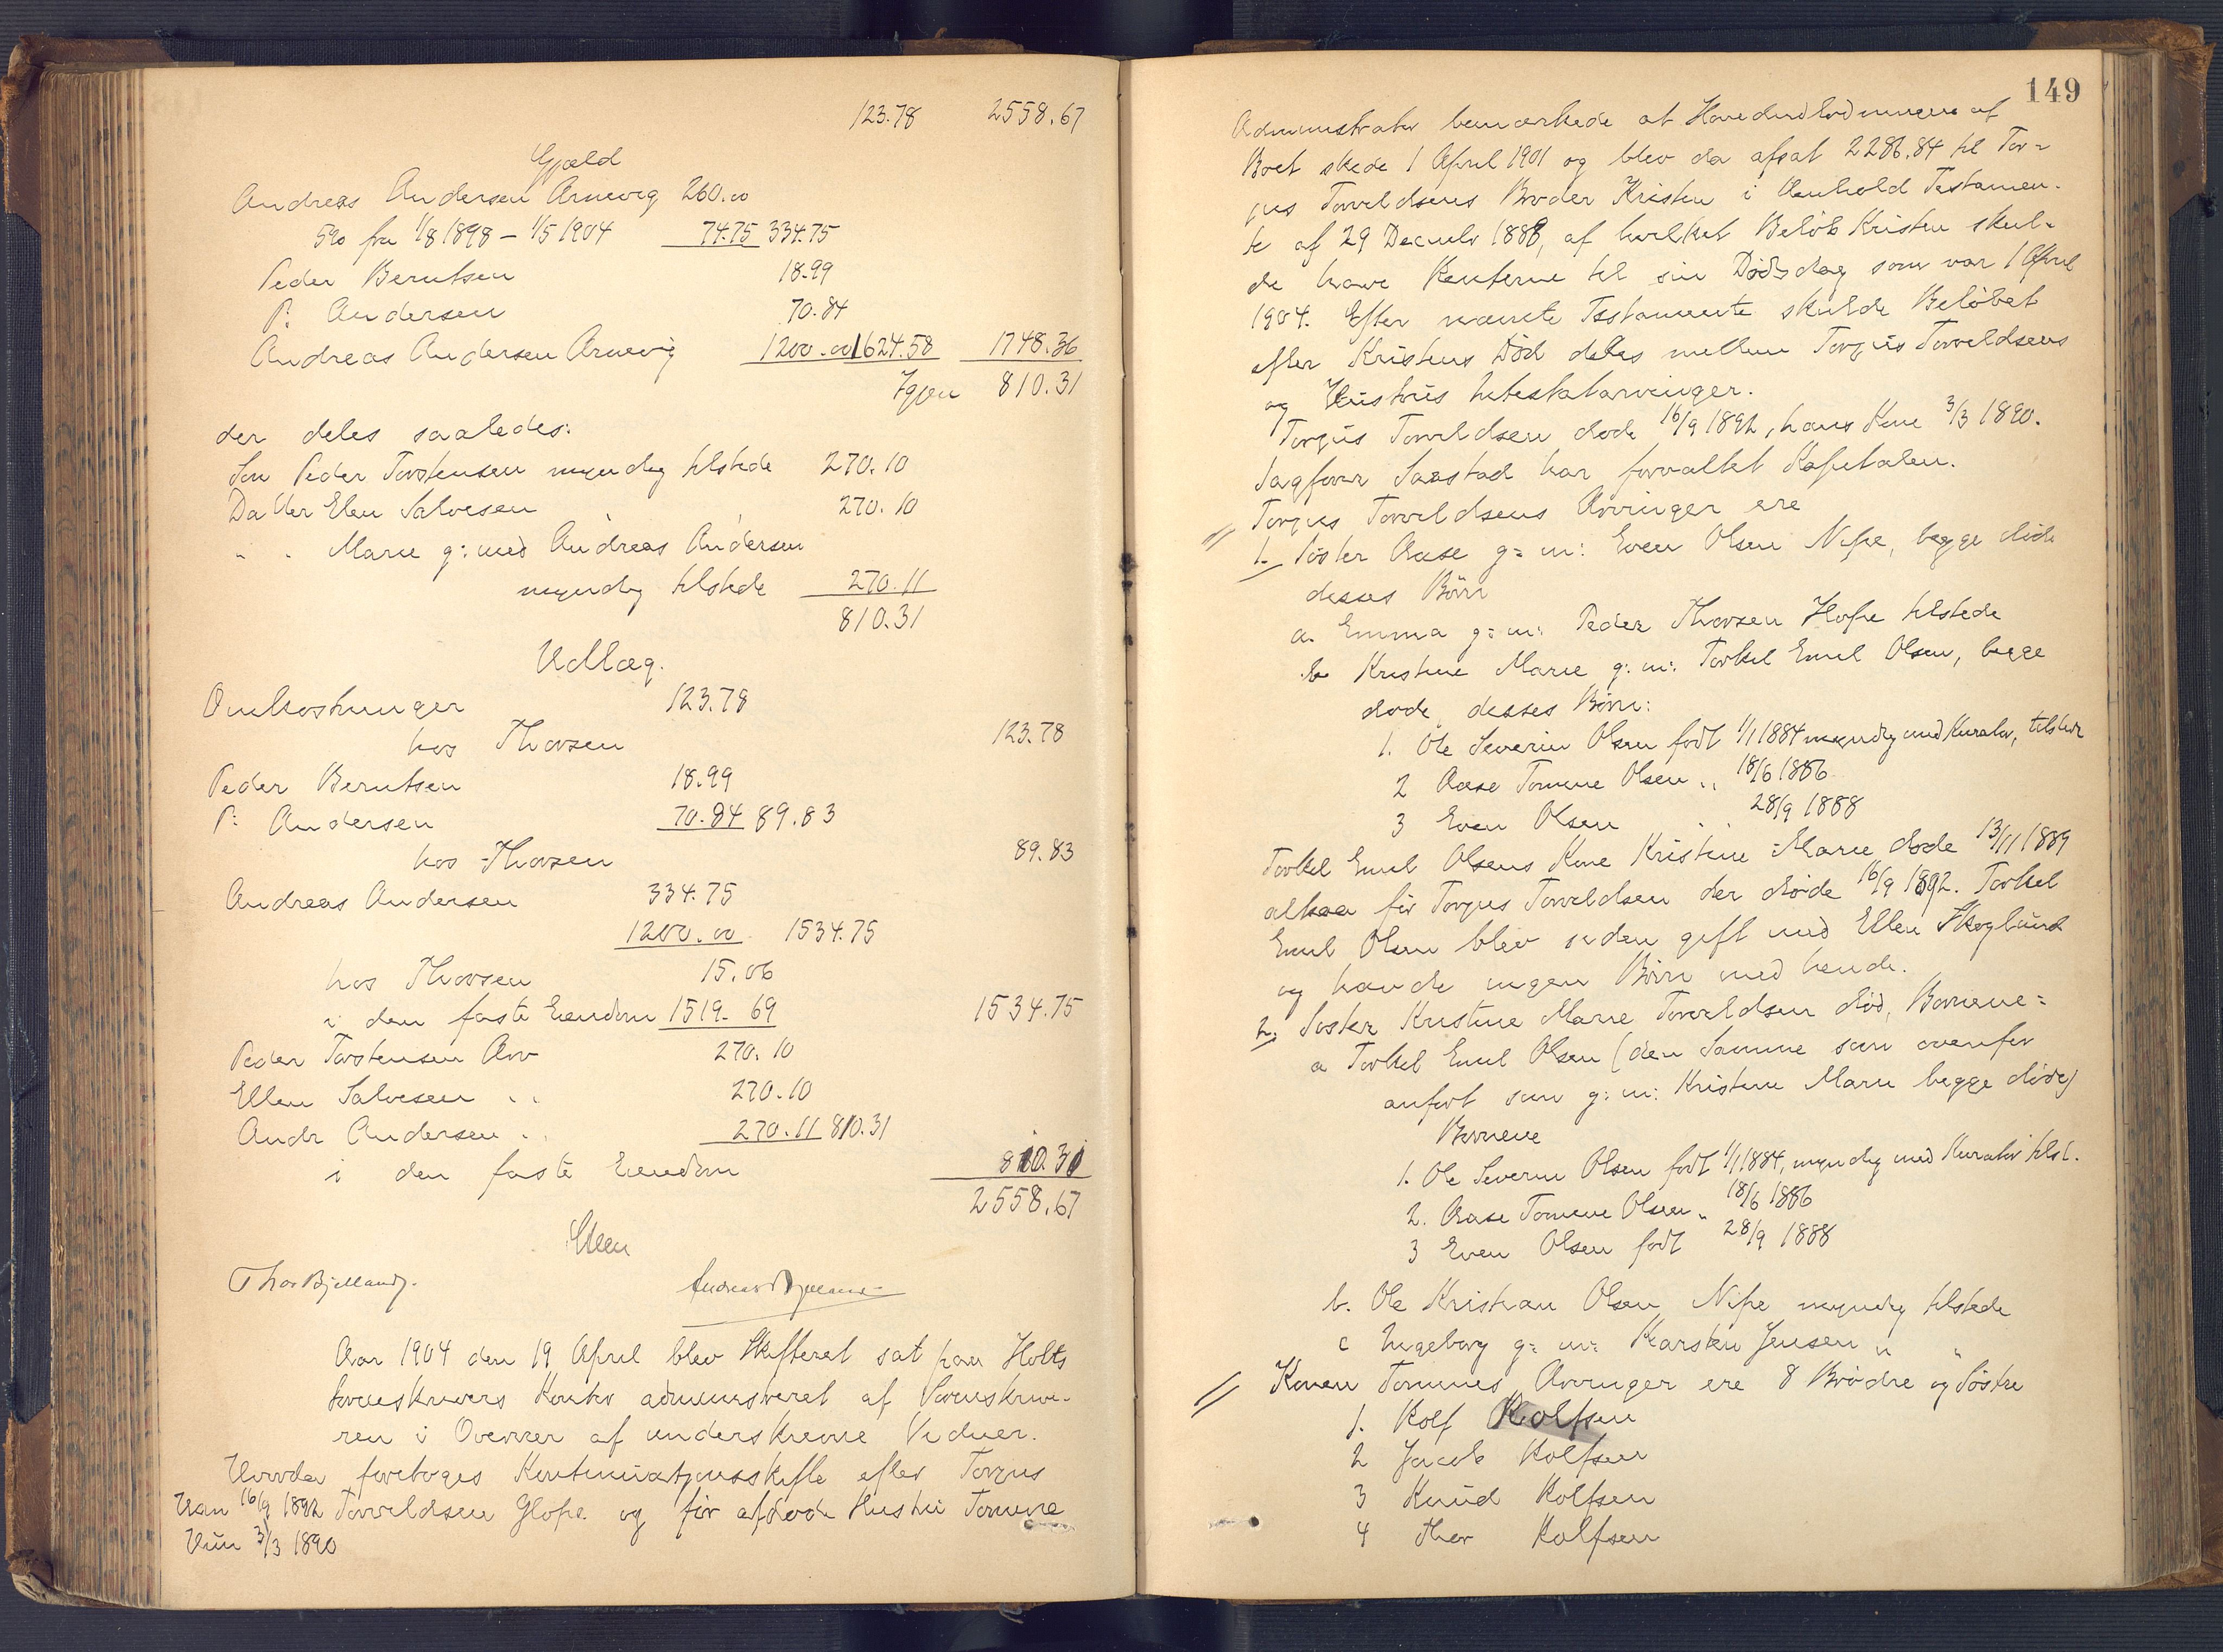 123.78 2558.67
Gjæld
Andreas Andersen Arnevig 260.00
5% fra 1/8 1898 – 1/5 1904 74.75 334.75
Peder Berntsen 18.99
P. Andersen 70.84
Andreas Andersen Arnevig 1200.00 1624.58 1748.36
Igjen 810.31
der deles saaledes:
Søn Peder Torstensen myndig tilstede 270.10
Datter Elen Salvesen 270.10
" " Marie g: med Andreas Andersen
myndig tilstede 270.11
810.31
Udlæg.
Omkostninger 123.78
hos Thorsen 123.78
Peder Berntsen 18.99
P. Andersen 70.84 89.83
hos Thorsen 89.83
Andreas Andersen 334.75
1200.00 1534.75
hos Thorsen 15.06
i den faste Eiendom 1519.69 1534.75
Peder Torstensen Arv 270.10
Ellen Salvesen " " 270.10
Andr Andersen " " 270.11 810.31
i den faste Eiendom 810.31
2558.67
Thor Bjelland.
Aar 1904 den 19 April blev Skifteret sat paa Holts
Sorenskrivers Kontor administreret af Sorenskrive-
ren i Overvær af underskrevne Vidner.
Hvorda foretoges Kontinuationsskifte efter Torjus
Han 16/9 1892 Torvildsen Glope og før afdøde Hustru Tomine
Hun 3/3 1890
149
Administrator bemærkede at Hovedudlodningen af
Boet skede 1 April 1901 og blev da afsat 2286.84 til Tor-
jus Torvildsens Broder Kristen i Henhold Testamen-
te af 29 Decmbr 1888, af hvilket Beløb Kristen skul-
de have Renterne til sin Dødsdag som var 1 April
1904. Efter nævnte Testamente skulde Beløbet
efter Kristens Død deles mellem Torjus Torvildsens
og Hustrus Intestatarvinger.
Torjus Torvildsen døde 16/9 1892, hans Kone 3/3 1890.
Sagfører Saastad har forvaltet Kapitalen.
Torjus Torvildsens Arvinger ere
1. Søster Aase g: m: Even Olsen Nipe, begge døde
desses Børn
a. Emma g: m: Peder Thorsen Hope tilstede
b. Kristine Marie g: m: Torkel Emil Olsen, begge
døde, desses Børn:
1. Ole Severin Olsen født 1/1 1884 myndig med Kurator, tilstede
2 Aase Tomine Olsen " 18/6 1886
3 Even Olsen " 28/9 1888
Torkel Emil Olsens Kone Kristine Marie døde 13/11 1889
altsaa før Torjus Torvildsen der døde 16/9 1892. Torkel
Emil Olsen blev siden gift med Ellen Skoglund
og havde ingen Børn med hende.
2. Søster Kristine Marie Torvildsen død, Børnene:
a Torkel Emil Olsen (den Samme som ovenfor
anført som g: m: Kristine Marie begge døde)
Børnene
1. Ole Severin Olsen født 1/1 1884, myndig med Kurator tilst.
2. Aase Tomine Olsen " 18/6 1886
3 Even Olsen født 28/9 1888
b. Ole Kristian Olsen Nipe myndig tilstede
c Ingeborg g: m: Karsten Jensen " "
Konen Tomines Arvinger ere 8 Brødre og Søstre
1. Rolf Rolfsen
2 Jacob Rolfsen
3 Knud Rolfsen
4 Thor Rolfsen